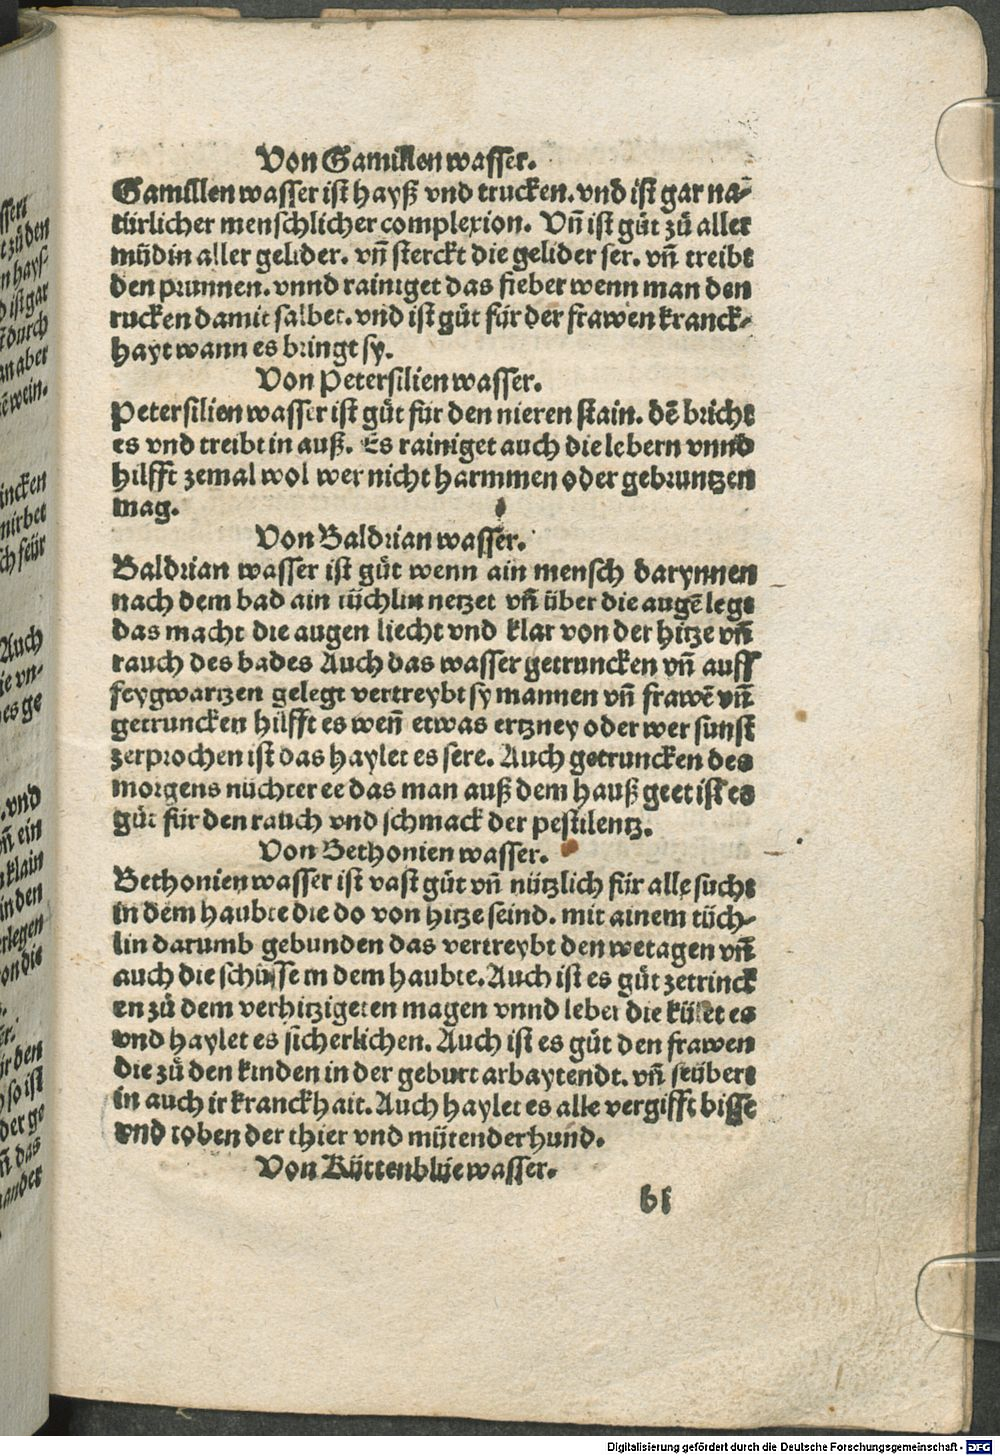 Von Gamillen wasser.
Gamillen wasser ist hayß vnd trucken. vnd ist gar na-
türlicher menschlicher complexion. Vñ ist gůt zů aller
můdin aller gelider. vñ sterckt die gelider ser. vñ treibt
den prunnen. vnnd rainiget das fieber wenn man den
rucken damit salbet. vnd ist gůt für der frawen kranck-
hayt wann es bringt sy.
Von Petersilien wasser.
Petersilien wasser ist gůt für den nieren stain. dē bricht
es vnd treibt in auß. Es rainiget auch die lebern vnnd
hilfft zemal wol wer nicht harmmen oder gebruntzen
mag.
Von Baldrian wasser.
Baldrian wasser ist gůt wenn ain mensch darynnen
nach dem bad ain tüchlin netzet vñ über die augē legt
das macht die augen liecht vnd klar von der hitze vñ
rauch des bades Auch das wasser getruncken vñ auff
feygwartzen gelegt vertreybt sy mannen vñ frawē vñ
getruncken hilfft es weñ etwas ertzney oder wer sunst
zerprochen ist das haylet es sere. Auch getruncken des
morgens nüchter ee das man auß dem hauß geet ist es
gůt für den rauch vnd schmack der pestilentz.
Von Bethonien wasser.
Bethonien wasser ist vast gůt vñ nützlich für alle sucht
in dem haubte die do von hitze seind. mit ainem tüch-
lin darumb gebunden das vertreybt den wetagen vñ
auch die schüsse in dem haubte. Auch ist es gůt zetrinck
en zů dem verhitzigeten magen vnnd leber die kület es
vnd haylet es sicherlichen. Auch ist es gůt den frawen
die zů den kinden in der geburt arbaytendt. vñ seübert
in auch ir kranckhait. Auch haylet es alle vergifft bisse
vnd toben der thier vnd mütender hund.
Von Küttenblüe wasser.
b i
Digitalisierung gefördert durch die Deutsche Forschungsgemeinschaft - DFG